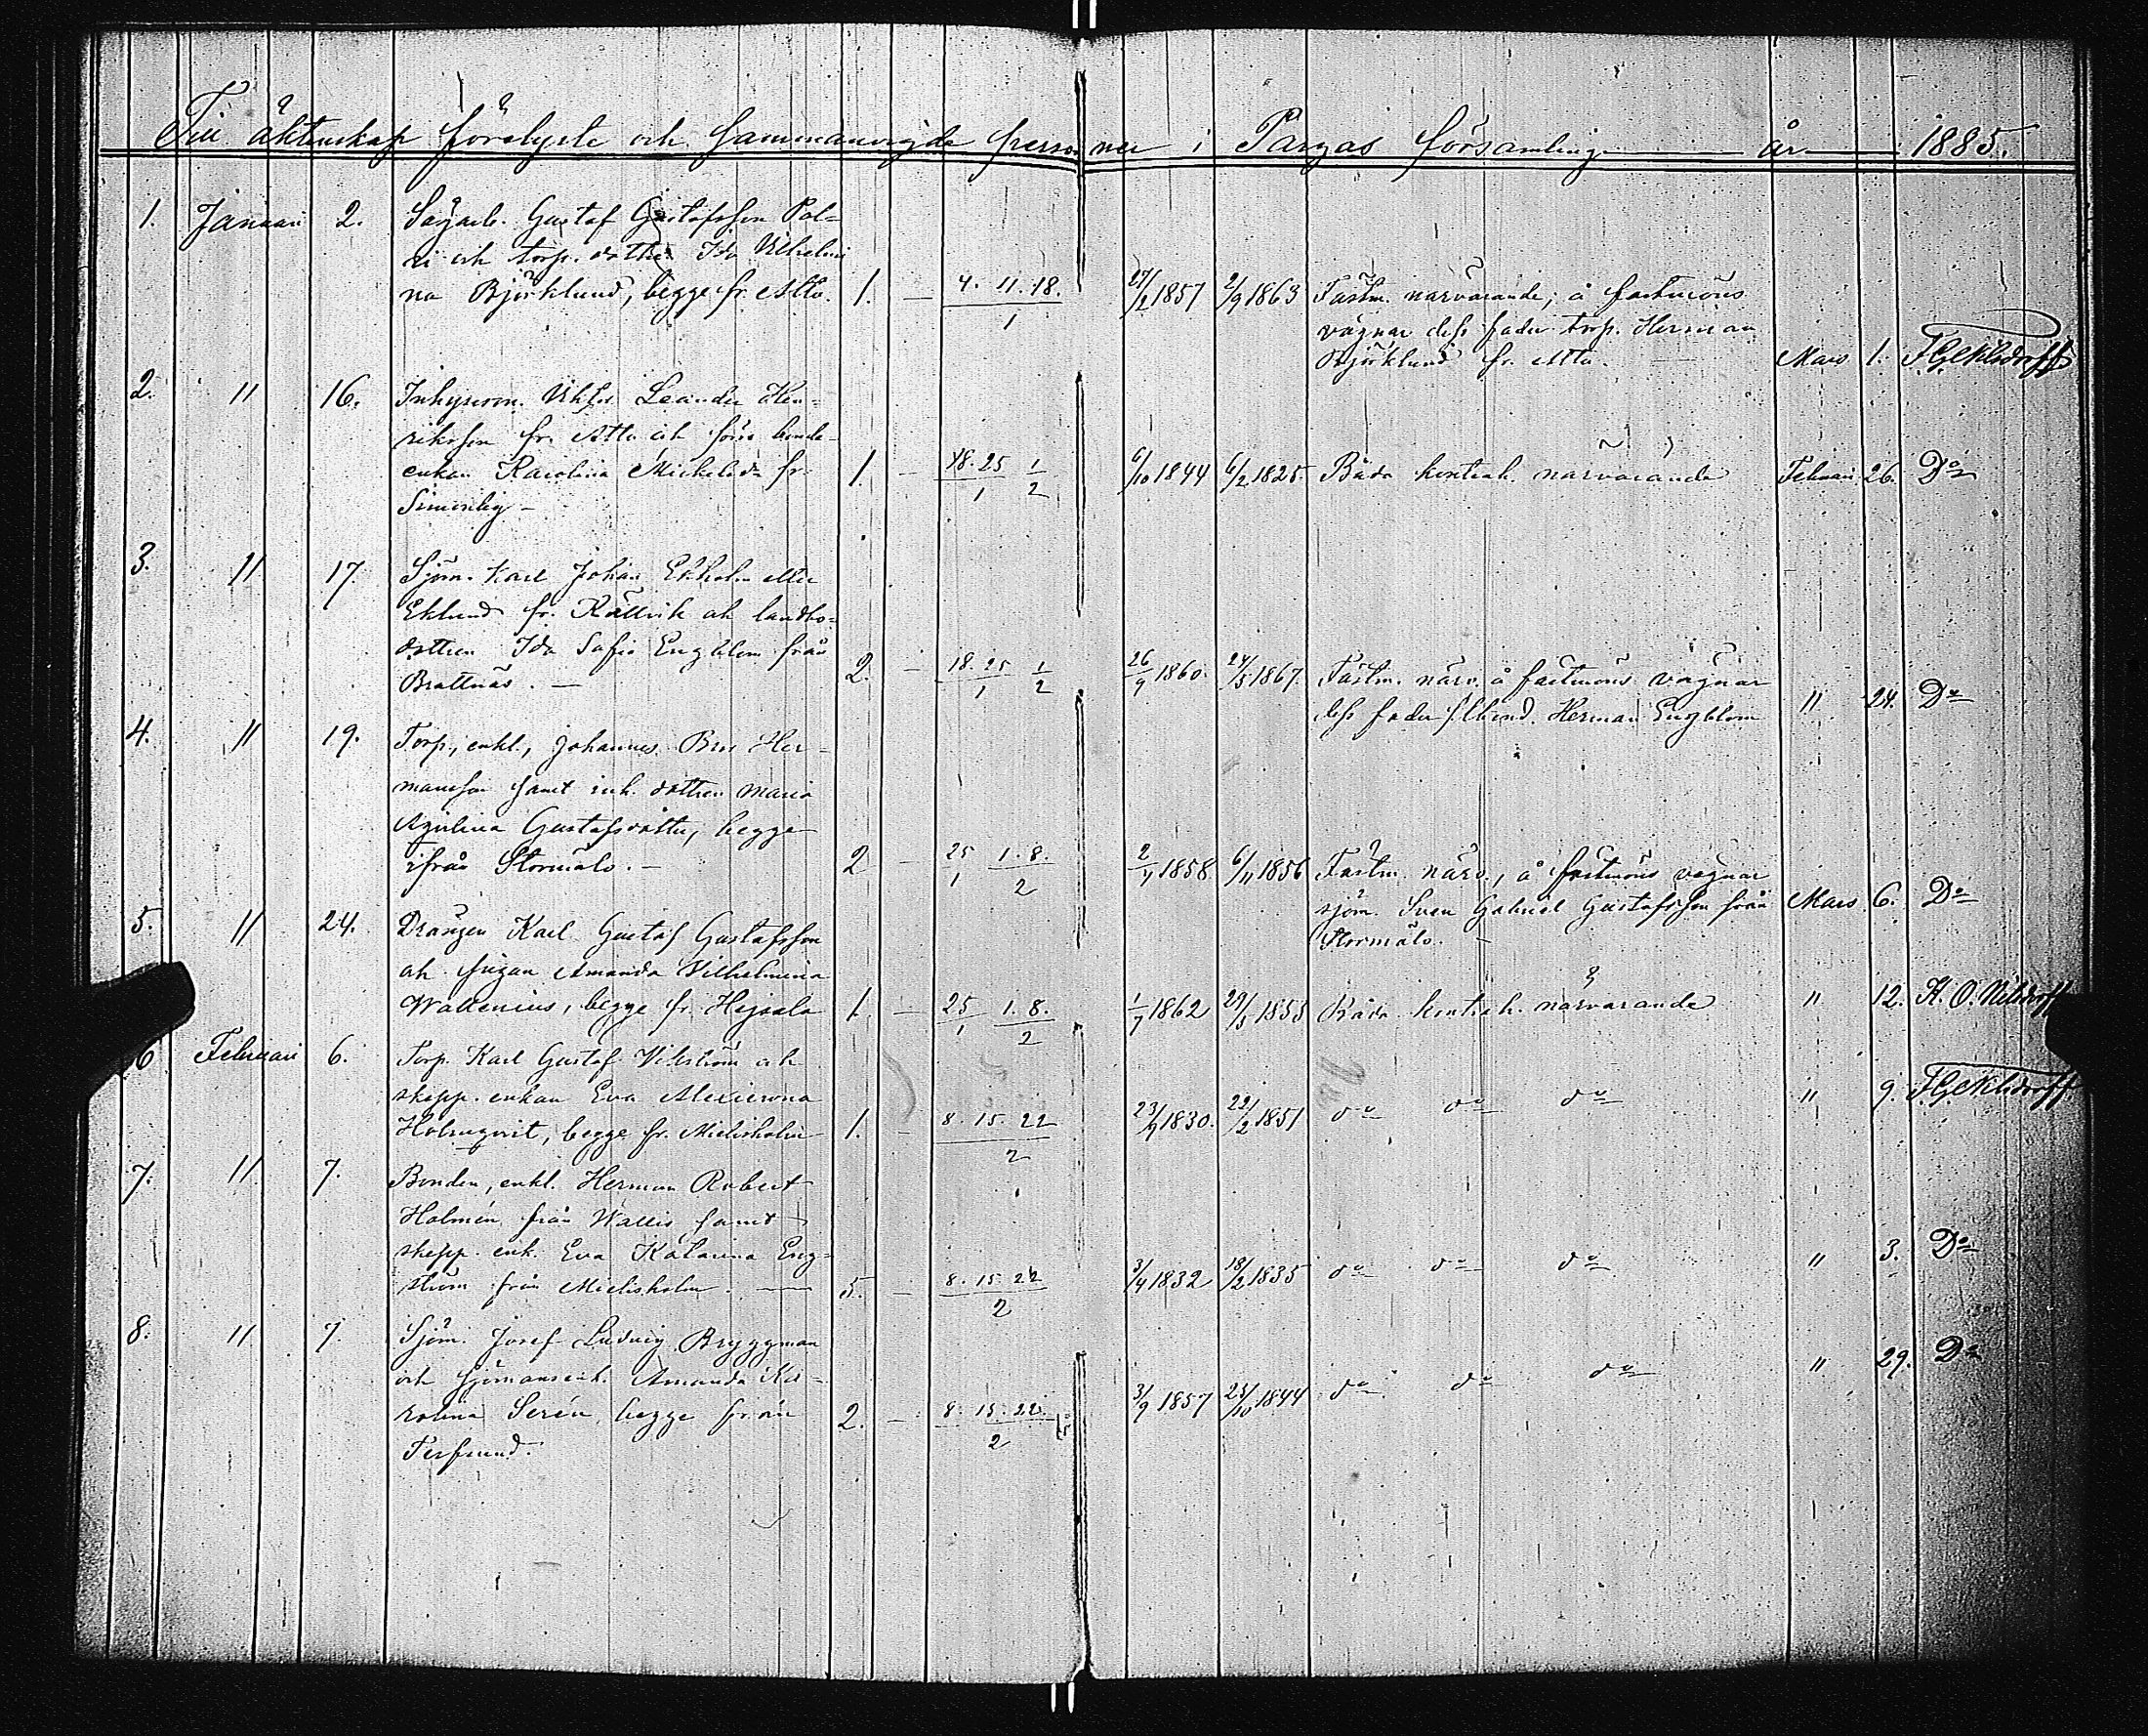 Till äktenskap förelyste och sammanvigde personer i Pargas församling år 1885.
1. Januari 2. Sågarb. Gustaf Gustafsson Pal-
ni och torp. dottr. Ida Vilhelmi
na Björklund, begge fr. Atto. 1. — 4. 11. 18. / 1 27/2 1857 2/9 1863 Fästm. närvarande, å fästmöns
vägnar dess fader torp. Herman
Björklund fr. Atto. — Mars 1. F. G. Nilsdorff
2. " 16. Inhyseson. Viktor Leander Hen-
riksson fr. Atto och förra bonde-
enkan Karolina Michelsdr fr. 1. — 18. 25 / 1 1/2 6/10 1844 6/2 1825. Båda kontrah. närvarande Februari 26. Do
Simonby —
3. " 17. Sjöm. Karl Johan Ekholm eller
Eklund fr. Källvik och landbo-
dottren Ida Sofia Engblom från 2. — 18. 25 / 1 1/2 26/9 1860. 24/5 1867. Fästm. närv. å fästmöns vägnar
Brattnäs. — dess fader Herman Engblom " 24. Do
4. " 19. Torp., enkl., Johannes Her-
mansson samt inh. dottren Maria
Gustafsdotter, begge
ifrån Stormälo. — 2 — 25 / 1 1. 8. / 2 1858. 6/11 1856 Fästm. närv., å fästmöns vägnar
sjöm. Sven Gabriel Gustafsson från Mars 6. Do
Stormälo. —
5. " 24. Drängen Karl Gustaf Gustafsson
och pigan Amanda Vilhelmina
Wallenius, begge fr. Hejsala 1. — 25 / 1 1. 8. / 2 1/7 1862 29/5 1853 Båda kontrah. närvarande " 12. K. O. Nilsdorff
6 Februari 6. Torp. Karl Gustaf Vikström och
skepp. enkan Eva
Holmqvist, begge fr. Mielisholm 1. 8. 15. 22 / 2 1830. 22/2 1851 do do do " 9. F. G. Nilsdorff
7. " 7. Bonden, enkl. Herman Robert
Holmén från Wallis samt
skepp. enk. Eva Katarina Eng-
ström från Mielisholm. — 5. — 8. 15. 22 / 2 3/4 1832 18/2 1835 do do do " 3. Do
8. " 7. Sjöm. Josef Ludvig Bryggman
och sjömansenk. Amanda Ka-
rolina Serén, begge från 2. — 8. 15. 22. / 2 3/9 1857 25/10 1844 do do do " 29. Do
Tersund.